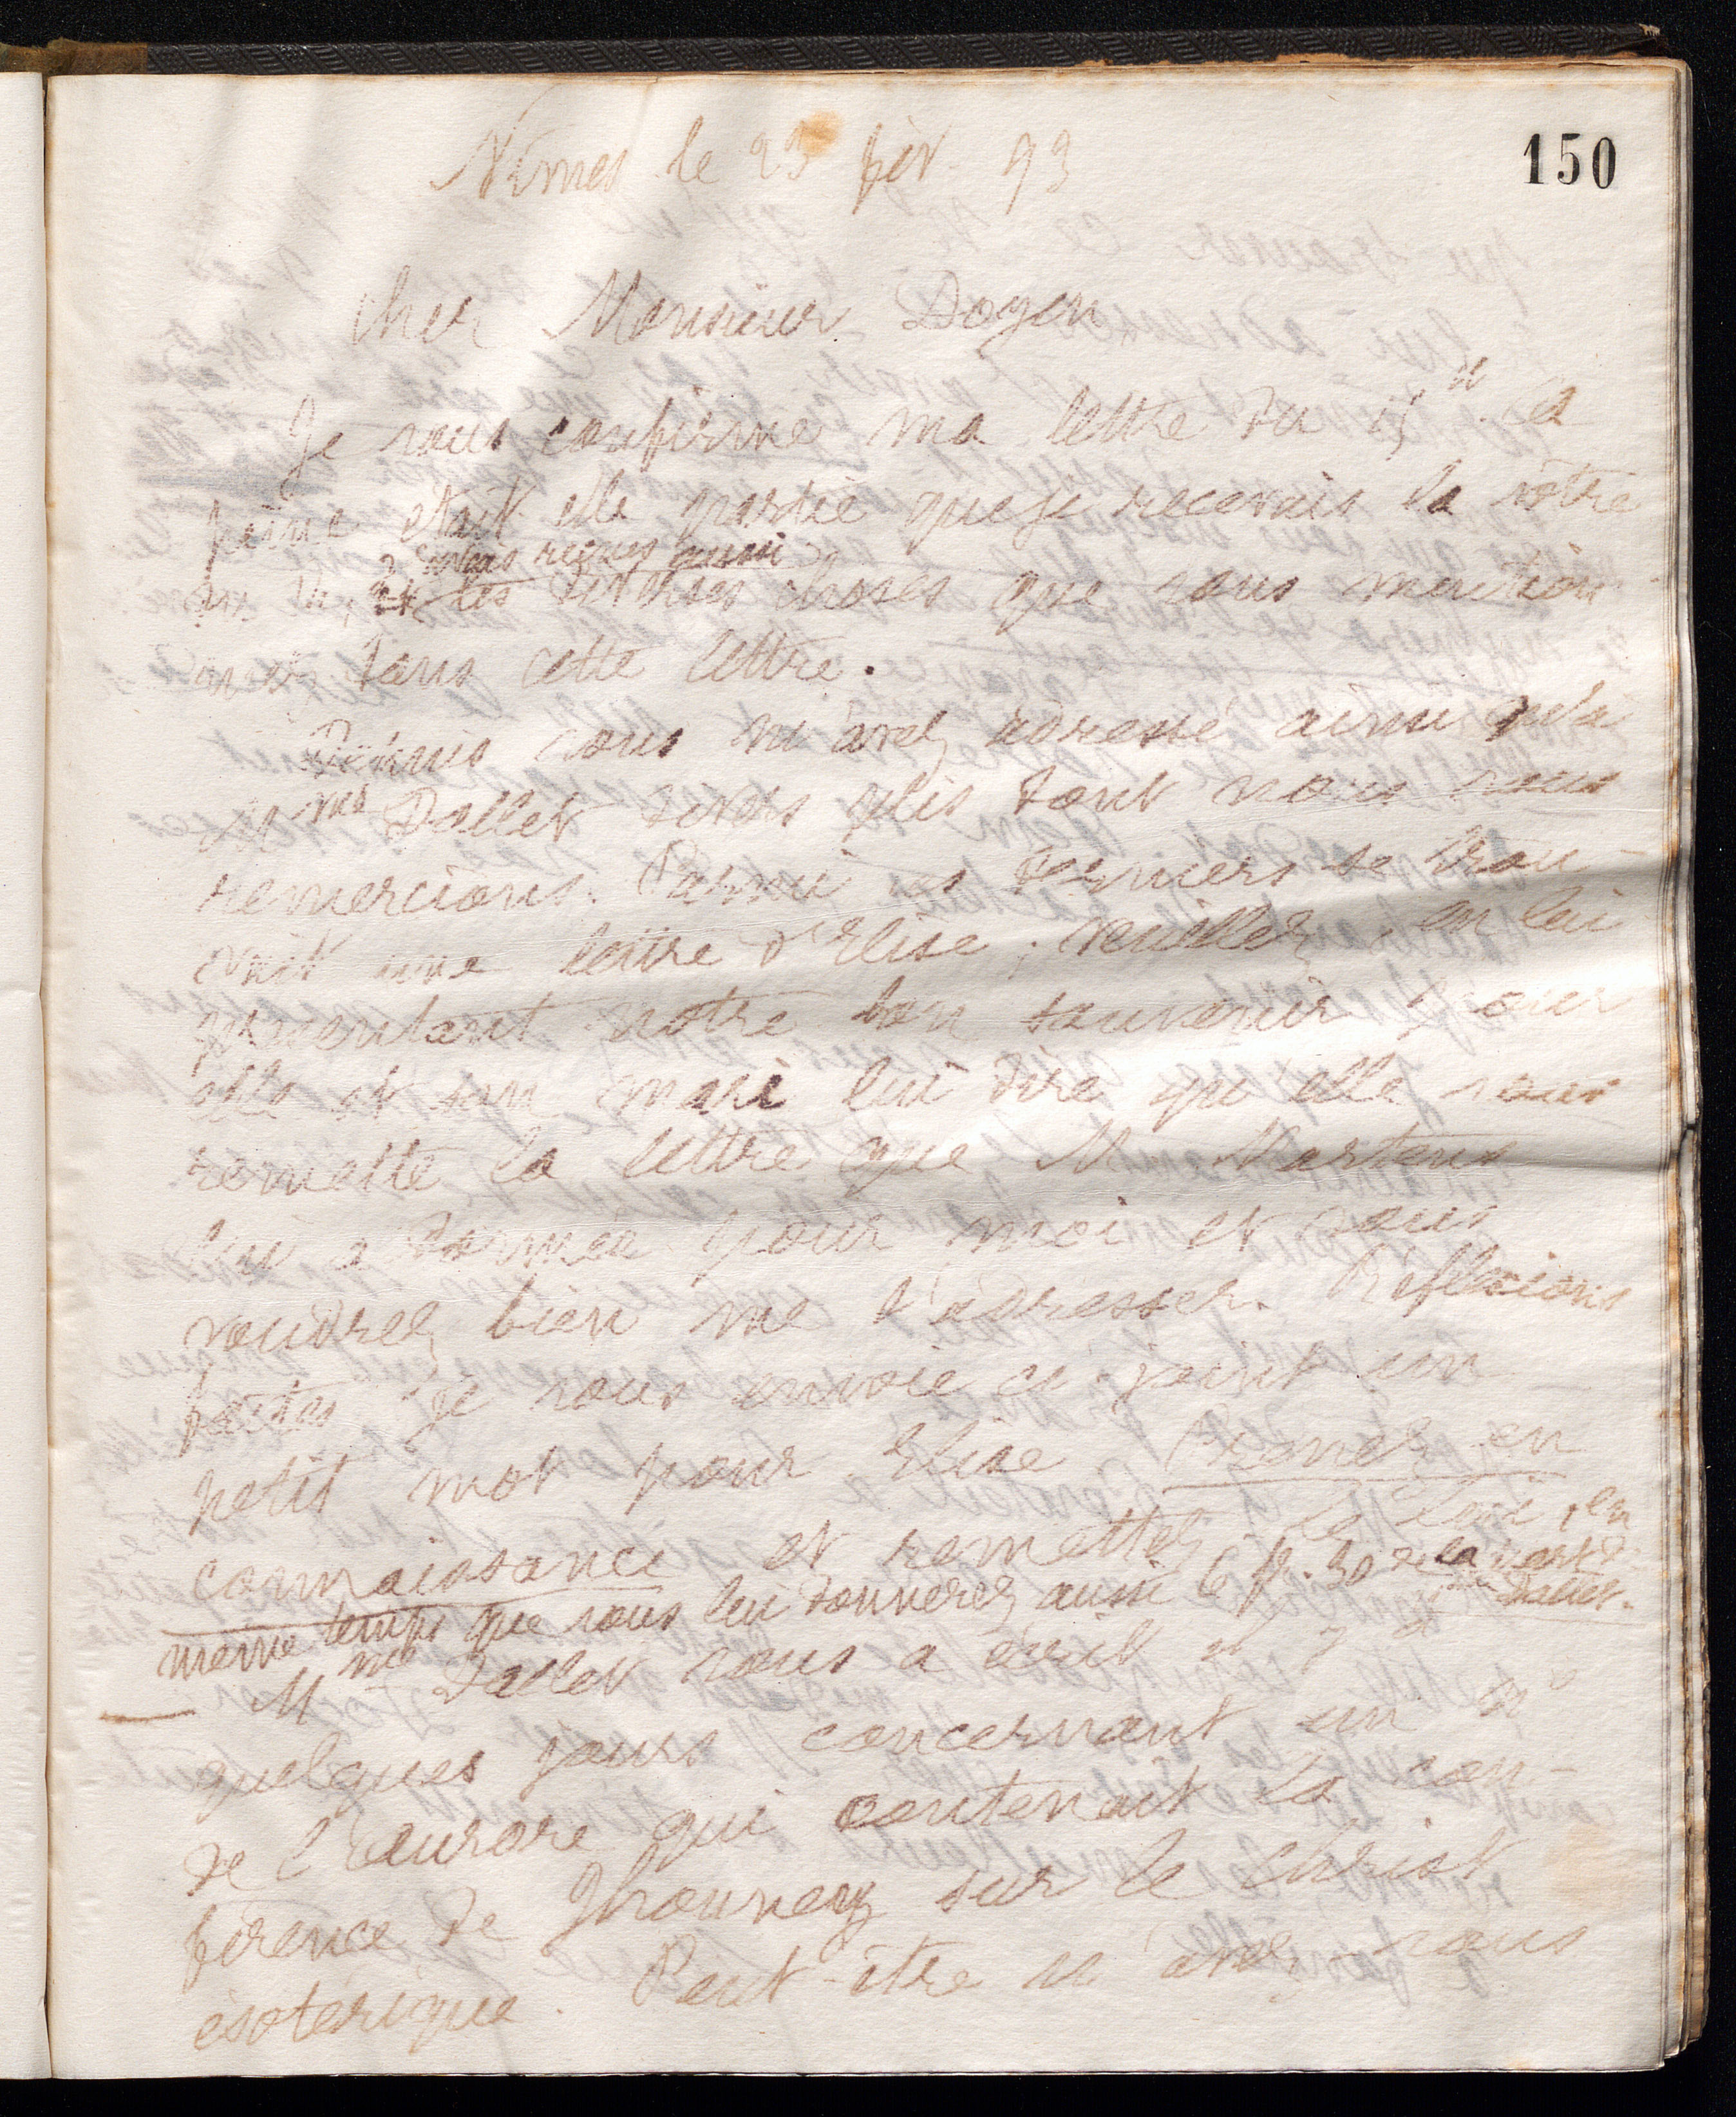 150
Nîmes le 23 fév. 93
Cher Monsieur Doyen
Je vous confirme ma lettre du 15 ct à
peine était elle partie que je recevais la vôtre
avons reçues aussi
du les diverses choses que vous mention-
nez dans cette lettre.
Depuis vous m'avez adressé ainsi qu'à
Mme Dallet divers plis dont nous vous
remercions. Parmi ces derniers se trou-
vait une lettre d'Elise ; veuillez, en lui
présentant notre bon souvenir pour
elle et son mari lui dire qu'elle vous
remette la lettre que M Martens
lui a donnée pour moi et vous
voudrez bien me l'adresser. Réflexions
faites je vous envoie ci-joint un
petit mot pour Elise. Prenez en
connaissance et remettez-le lui, en
même temps que vous lui donnerez aussi 6 fr. 30 de la part de
Mme Dallet.
Mme Dallet vous a écrit il y a
quelques jours concernant un No
de l'Aurore qui contenait la con-
férence de Jhouney sur le Christ
ésotérique. Peut-être n'avez-vous